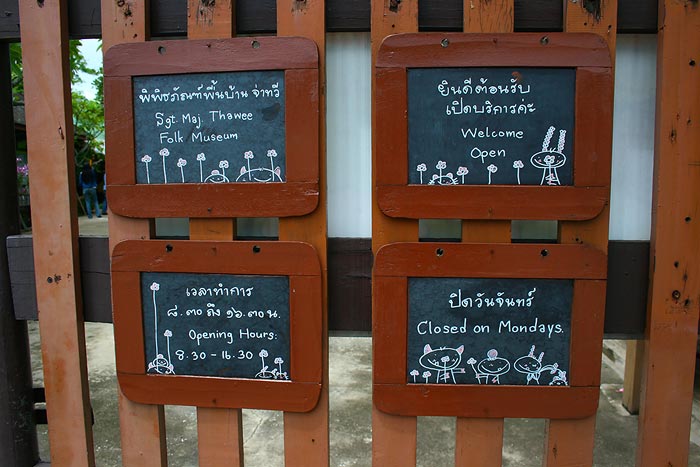 พิพิธภัณฑ์พื้นบ้าน จ่าทวี
Sgt. Maj. Thawee
Folk Museum
ยินดีต้อนรับ
เปิดบริการค่ะ
Welcome
Open
เวลาทำการ
๘.๓๐ ถึง ๑๖.๓๐ น.
Opening Hours:
8.30 - 16.30
ปิดวันจันทร์
Closed on Mondays.